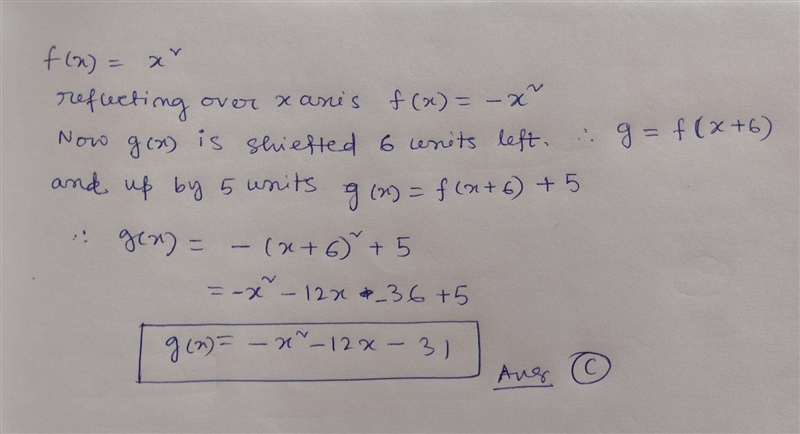 f(x) = x²
reflecting over x axis f(x) = -x²
Now g(x) is shiefted 6 units left. ∴ g = f(x+6)
and up by 5 units g(x) = f(x+6) + 5
∴ g(x) = -(x+6)² + 5
= -x² - 12x - 36 + 5
g(x) = -x² - 12x - 31
Ans C